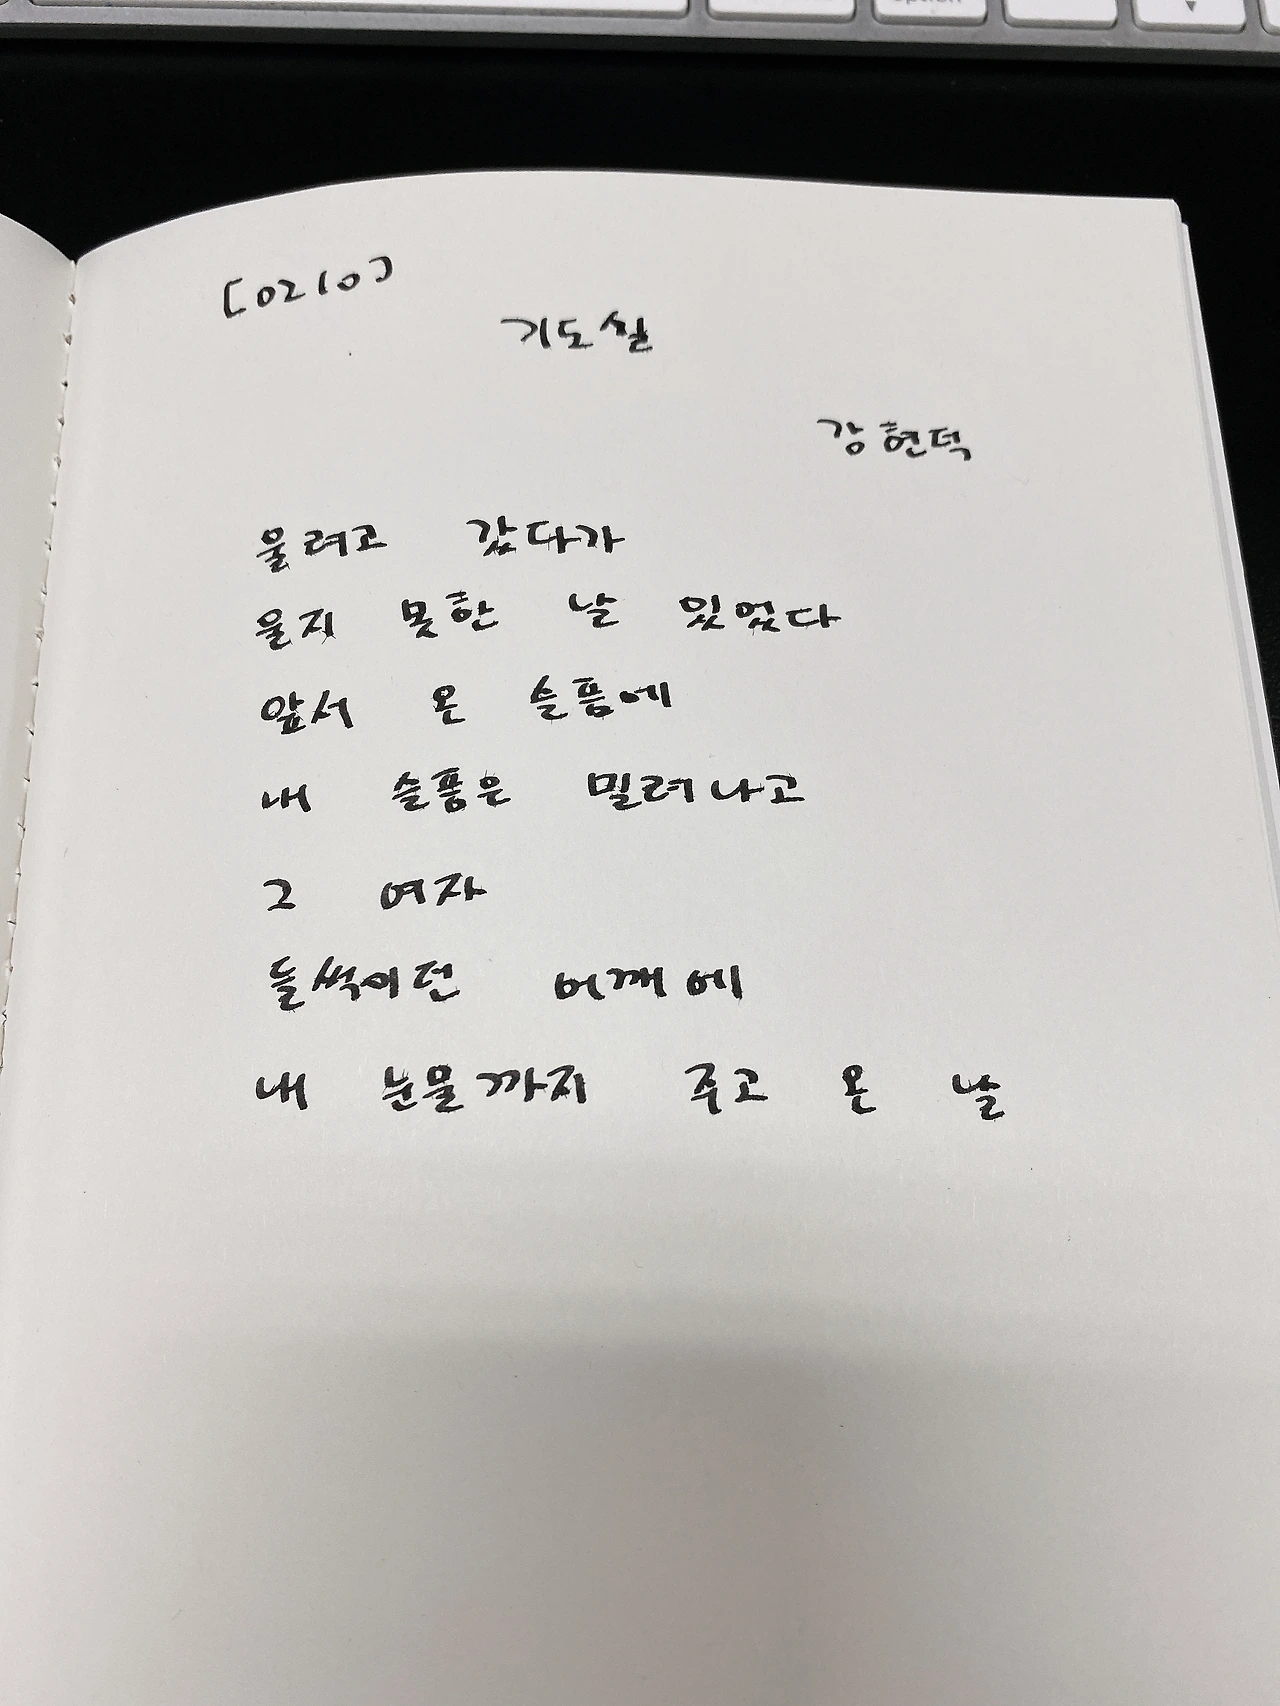 [0210]
기도실
강현덕
울려고 갔다가
울지 못한 날 있었다
앞서 온 슬픔에
내 슬픔은 밀려나고
그 여자
들썩이던 어깨에
내 눈물까지 주고 온 날